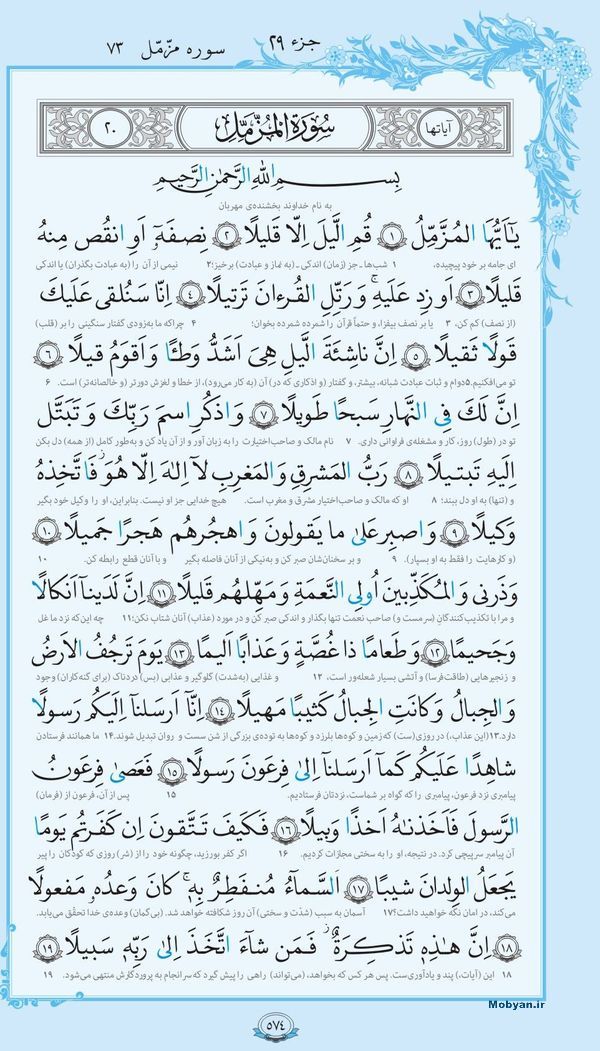 جزء ۲۹ سوره مزّمّل ۷۳
آیاتها سُورَةُ المُزَّمِّل ۲۰
بِسمِ اللهِ الرَّحمٰنِ الرَّحیمِ
به نام خداوند بخشنده‌ی مهربان
یٰٓاَیُّهَا المُزَّمِّلُ ۱ قُمِ الَّیلَ اِلّا قَلیلًا ۲ نِصفَهٓ اَوِ انقُص مِنهُ
ای جامه بر خود پیچیده، ۱ شب‌ها ـ جز (زمان) اندکی ـ (به نماز و عبادت) برخیز؛ ۲ نیمی از آن را (به عبادت بگذران) یا اندکی
قَلیلًا ۳ اَو زِد عَلَیهِ ۚ وَ رَتِّلِ القُرءانَ تَرتیلًا ۴ اِنّا سَنُلقی عَلَیکَ
(از نصف) کم کن، ۳ یا بر نصف بیفزا، و حتماً قرآن را شمرده شمرده بخوان؛ ۴ چراکه ما به‌زودی گفتار سنگینی را بر (قلب)
قَولًا ثَقیلًا ۵ اِنَّ ناشِئَةَ الَّیلِ هِیَ اَشَدُّ وَطئًا وَ اَقوَمُ قیلًا ۶
تو می‌افکنیم. ۵ دوام و ثبات عبادت شبانه، بیشتر، و گفتار (و اذکاری که در) آن (به کار می‌رود)، از خطا و لغزش دورتر (و خالصانه‌تر) است. ۶
اِنَّ لَکَ فِی النَّهارِ سَبحًا طَویلًا ۷ وَ اذکُرِ اسمَ رَبِّکَ وَ تَبَتَّل
تو در (طول) روز، کار و مشغله‌ی فراوانی داری. ۷ نام مالک و صاحب‌اختیارت را به زبان آور و از آن یاد کن و به‌طور کامل (از همه) دل بکن
اِلَیهِ تَبتیلًا ۸ رَبُّ المَشرِقِ وَ المَغرِبِ لآ اِلٰهَ اِلّا هُوَ فَاتَّخِذهُ
و (تنها) به او دل ببند؛ ۸ او که مالک و صاحب‌اختیار مشرق و مغرب است. هیچ خدایی جز او نیست. بنابراین، او را وکیل خود بگیر
وَکیلًا ۹ وَ اصبِر عَلیٰ ما یَقولونَ وَ اهجُرهُم هَجرًا جَمیلًا ۱۰
(و کارهایت را فقط به او بسپار). ۹ و بر سخنان‌شان صبر کن و به‌نیکی از آنان فاصله بگیر و با آنان قطع رابطه کن. ۱۰
وَ ذَرنی وَ المُکَذِّبینَ اُولِی النَّعمَةِ وَ مَهِّلهُم قَلیلًا ۱۱ اِنَّ لَدَینآ اَنکالًا
و مرا با تکذیب‌کنندگان (سرمست و) صاحب نعمت تنها بگذار و اندکی صبر کن و در مورد (عذاب) آنان شتاب نکن؛ ۱۱ چه این‌که نزد ما غل
وَ جَحیمًا ۱۲ وَ طَعامًا ذا غُصَّةٍ وَ عَذابًا اَلیمًا ۱۳ یَومَ تَرجُفُ الاَرضُ
و زنجیرهایی (طاقت‌فرسا) و آتشی بسیار شعله‌ور است، ۱۲ و غذایی (به‌شدت) گلوگیر و عذابی (بس) دردناک (برای گنه‌کاران) وجود
وَ الجِبالُ وَ کانَتِ الجِبالُ کَثیبًا مَهیلًا ۱۴ اِنّآ اَرسَلنآ اِلَیکُم رَسولًا
دارد. ۱۳ (این عذاب،) در روزی (ست) که زمین و کوه‌ها بلرزد و کوه‌ها به توده‌ی بزرگی از شن سست و روان تبدیل شوند. ۱۴ ما همانند فرستادن
شاهِدًا عَلَیکُم کَمآ اَرسَلنآ اِلیٰ فِرعَونَ رَسولًا ۱۵ فَعَصیٰ فِرعَونُ
پیامبری نزد فرعون، پیامبری را که گواه بر شماست، نزدتان فرستادیم. ۱۵ پس از آن، فرعون از (فرمان)
الرَّسولَ فَاَخَذنٰهُ اَخذًا وَبیلًا ۱۶ فَکَیفَ تَتَّقونَ اِن کَفَرتُم یَومًا
آن پیامبر سرپیچی کرد. در نتیجه، او را به سختی مجازات کردیم. ۱۶ اگر کفر بورزید، چگونه خود را از (شر) روزی که کودکان را پیر
یَجعَلُ الوِلدانَ شیبًا ۱۷ اَلسَّمآءُ مُنفَطِرٌ بِهٖ ۚ کانَ وَعدُهٗ مَفعولًا
می‌کند، در امان نگه خواهید داشت؟ ۱۷ آسمان به سبب (شدّت و سختی) آن روز شکافته خواهد شد. (بی‌گمان) وعده‌ی خدا تحقّق می‌یابد.
۱۸ اِنَّ هٰذِهٖ تَذکِرَةٌ ۖ فَمَن شآءَ اتَّخَذَ اِلیٰ رَبِّهٖ سَبیلًا ۱۹
۱۸ این (آیات،) پند و یادآوری‌ست. پس هر کس که بخواهد، (می‌تواند) راهی را پیش گیرد که سرانجام به پروردگارش منتهی می‌شود. ۱۹
Mobyan.ir
۵۷۴